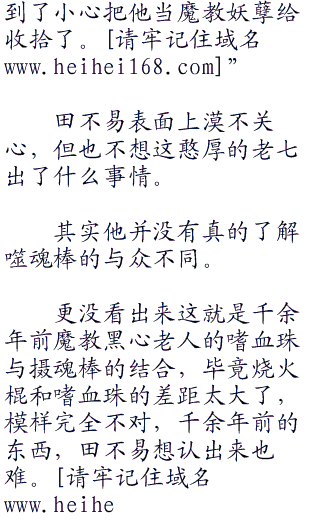 到了小心把他当魔教妖孽给
收拾了。[请牢记住域名
www.heihei168.com]”
田不易表面上漠不关
心，但也不想这憨厚的老七
出了什么事情。
其实他并没有真的了解
噬魂棒的与众不同。
更没看出来这就是千余
年前魔教黑心老人的嗜血珠
与摄魂棒的结合，毕竟烧火
棍和嗜血珠的差距太大了，
模样完全不对，千余年前的
东西，田不易想认出来也
难。[请牢记住域名
www.heihe